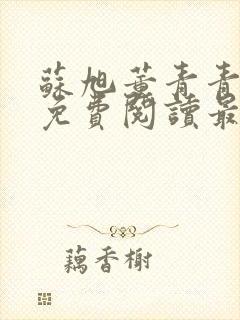 蘇旭黃青青
免費閱讀最
藕香榭